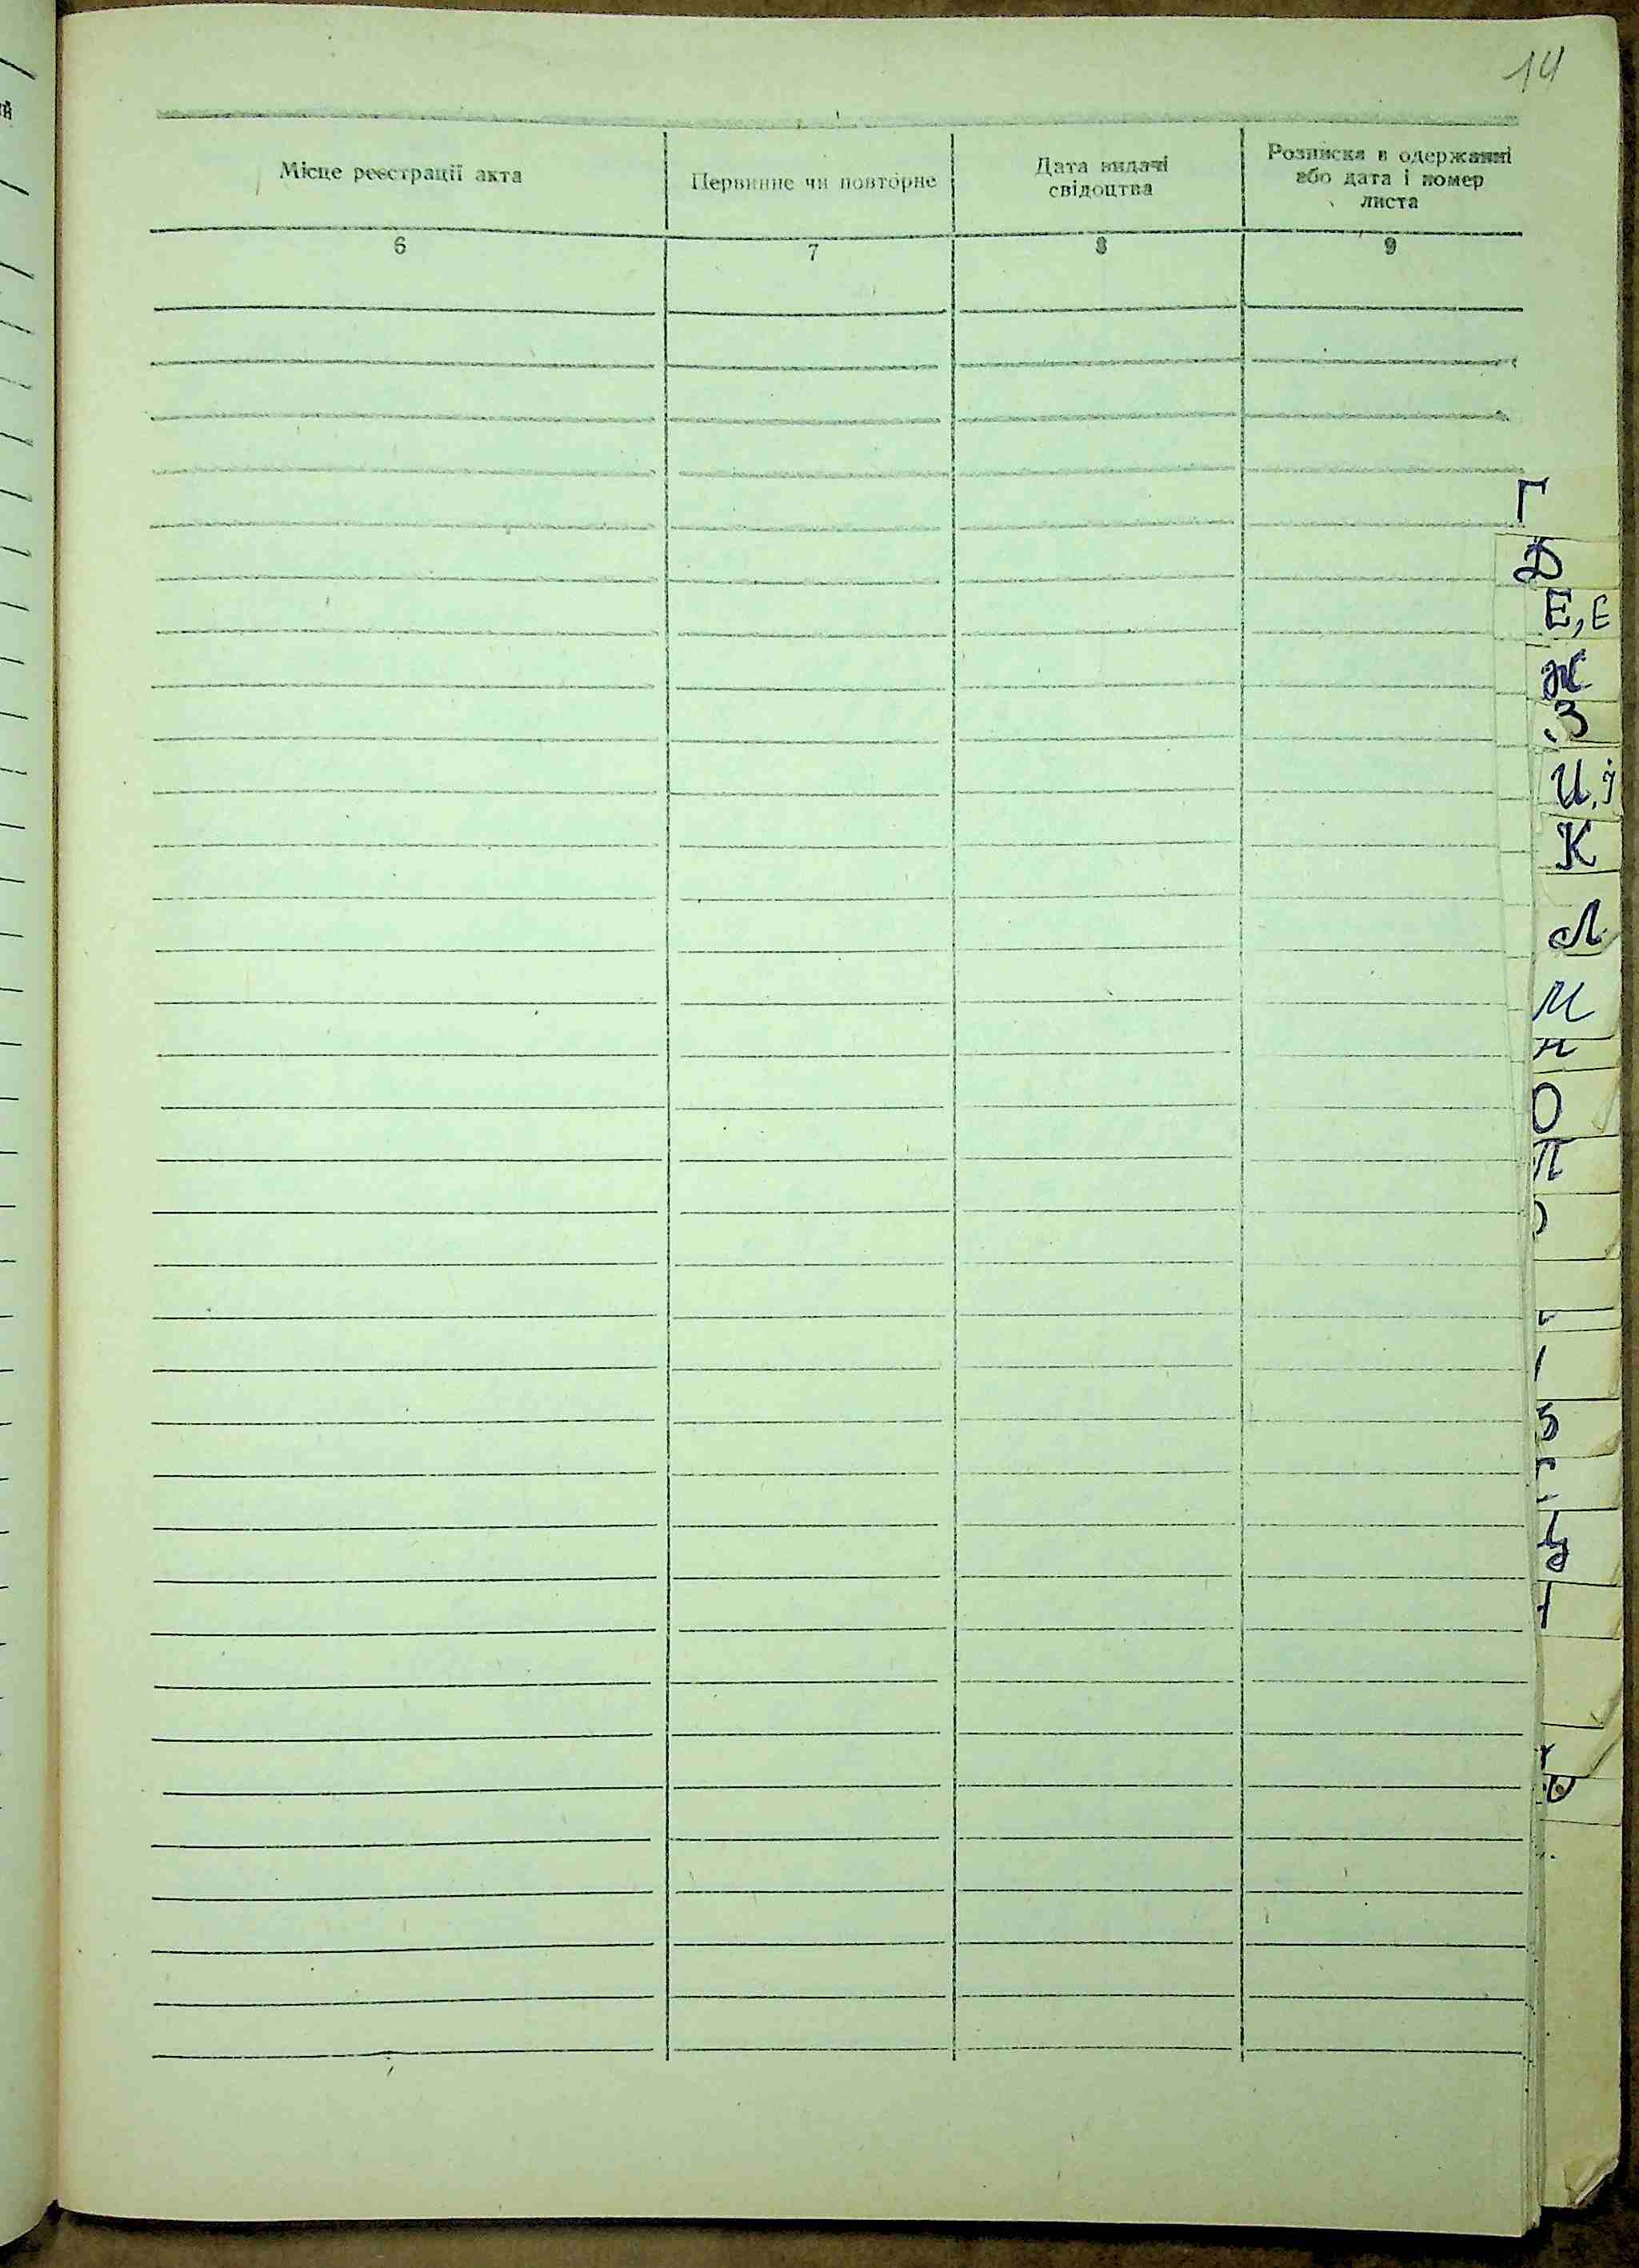 14
Місце реєстрації акта
Первинне чи повторне
Дата видачі
свідоцтва
Розписка в одержанні
або дата і номер
листа
6
7
8
9
Г
Д
Е, Є
Ж
З
И, І
К
Л
М
Н
О
П